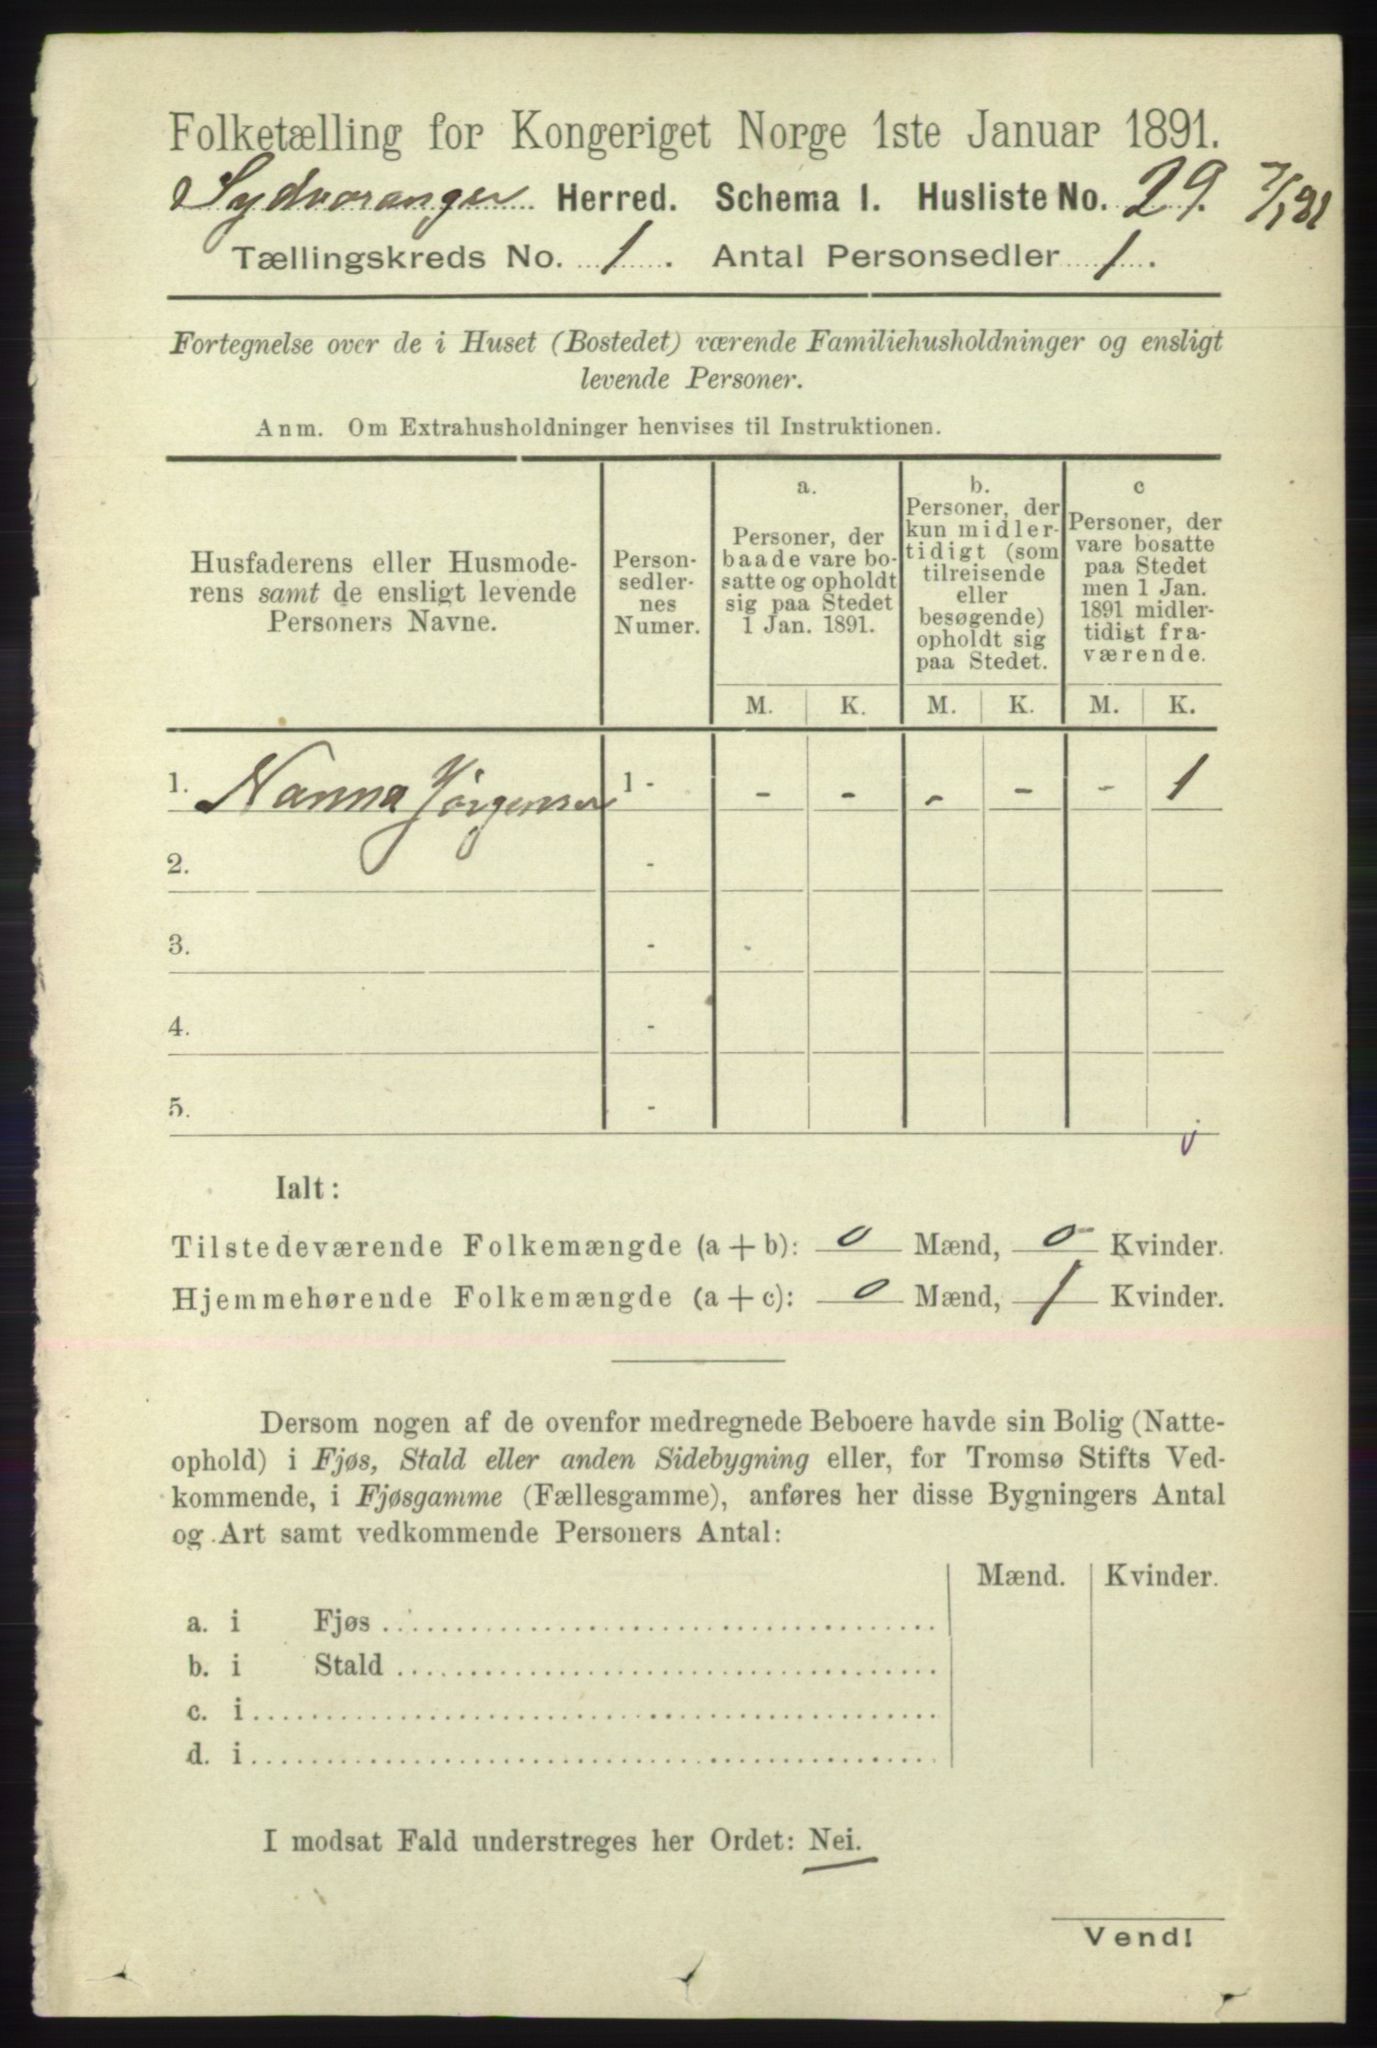 Folketælling for Kongeriget Norge 1ste Januar 1891.
Sydvaranger Herred. Schema I. Husliste No. 29. 7/1 91
Tællingskreds No. 1. Antal Personsedler 1.
Fortegnelse over de i Huset (Bostedet) værende Familiehusholdninger og ensligt
levende Personer.
Anm. Om Extrahusholdninger henvises til Instruktionen.
Husfaderens eller Husmode-
rens samt de ensligt levende
Personers Navne.
Person-
sedler-
nes
Numer.
a.
Personer, der
baade vare bo-
satte og opholdt
sig paa Stedet
1 Jan. 1891.
b.
Personer, der
kun midler-
tidigt (som
tilreisende
eller
besøgende)
opholdt sig
paa Stedet.
c
Personer, der
vare bosatte
paa Stedet
men 1 Jan.
1891 midler-
tidigt fra-
værende.
M. K. M. K. M. K.
1. Nanna Jørgensen 1 - - - - - - 1
2. -
3. -
4. -
5. -
Ialt:
Tilstedeværende Folkemængde (a + b): 0 Mænd, 0 Kvinder.
Hjemmehørende Folkemængde (a + c): 0 Mænd, 1 Kvinder.
Dersom nogen af de ovenfor medregnede Beboere havde sin Bolig (Natte-
ophold) i Fjøs, Stald eller anden Sidebygning eller, for Tromsø Stifts Ved-
kommende, i Fjøsgamme (Fællesgamme), anføres her disse Bygningers Antal
og Art samt vedkommende Personers Antal:
Mænd. Kvinder.
a. i Fjøs
b. i Stald
c. i
d. i
I modsat Fald understreges her Ordet: Nei.
Vend!